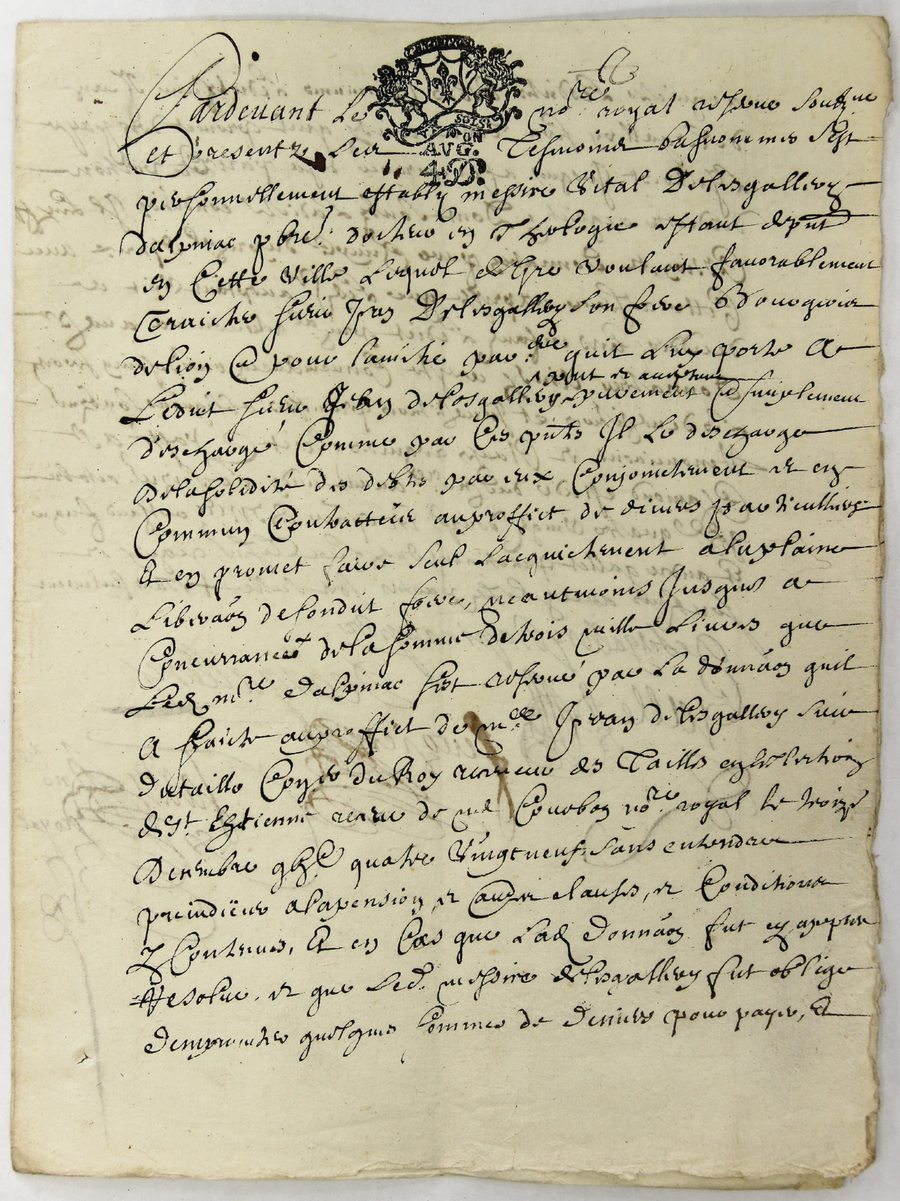 GNALITE DE LYON
AUG.
4 D.
Pardevant Le no.re royal reserve soubz.ne
et presentz Les Tesmoins bas nommes s'est
personnellement estably messire Vital Delesgallery
dalpinac p.bre docteur en Theologie estant de p.nt
en Cette ville Lequel de gre voulant favorablement
Traicter sieur Jean Delesgallery son frere Bourgeois
de lion et pour lamitié par.re quil Luy porte a
p.nt et acceptant
Ledict sieur Jean delesgallery purement et simplement
deschargé Comme par Ces p.nts Il Le descharge
de la solidité des debts par eux Conjoinctement et en
Commun Contractees au proffict de divers particulliers
Et en promet faire seul Lacquictement a la plaine
Liberaon de sondit frere, neantmoins Jusques a
Concurrance de la somme de trois mille Livres que
Led. m.re dalpinac sest reservé par La donnaon quil
A faicte au proffict de m.re Jean delesgallery sieur
du taillo Con.er du Roy receveur des Tailles en lElection
de S.t Estienne receue de me Courbon no.re royal le troize
Decembre quatre Vingt neuf, sans entendre
preiudicier a la pension, et autres clauses, et Conditions
y Contenues, Et en Cas que Lad. donnaon fut cy apres
Resolue, et que Led. messire delesgallery fut obligé
demprunter quelques sommes de deniers pour payer, Et